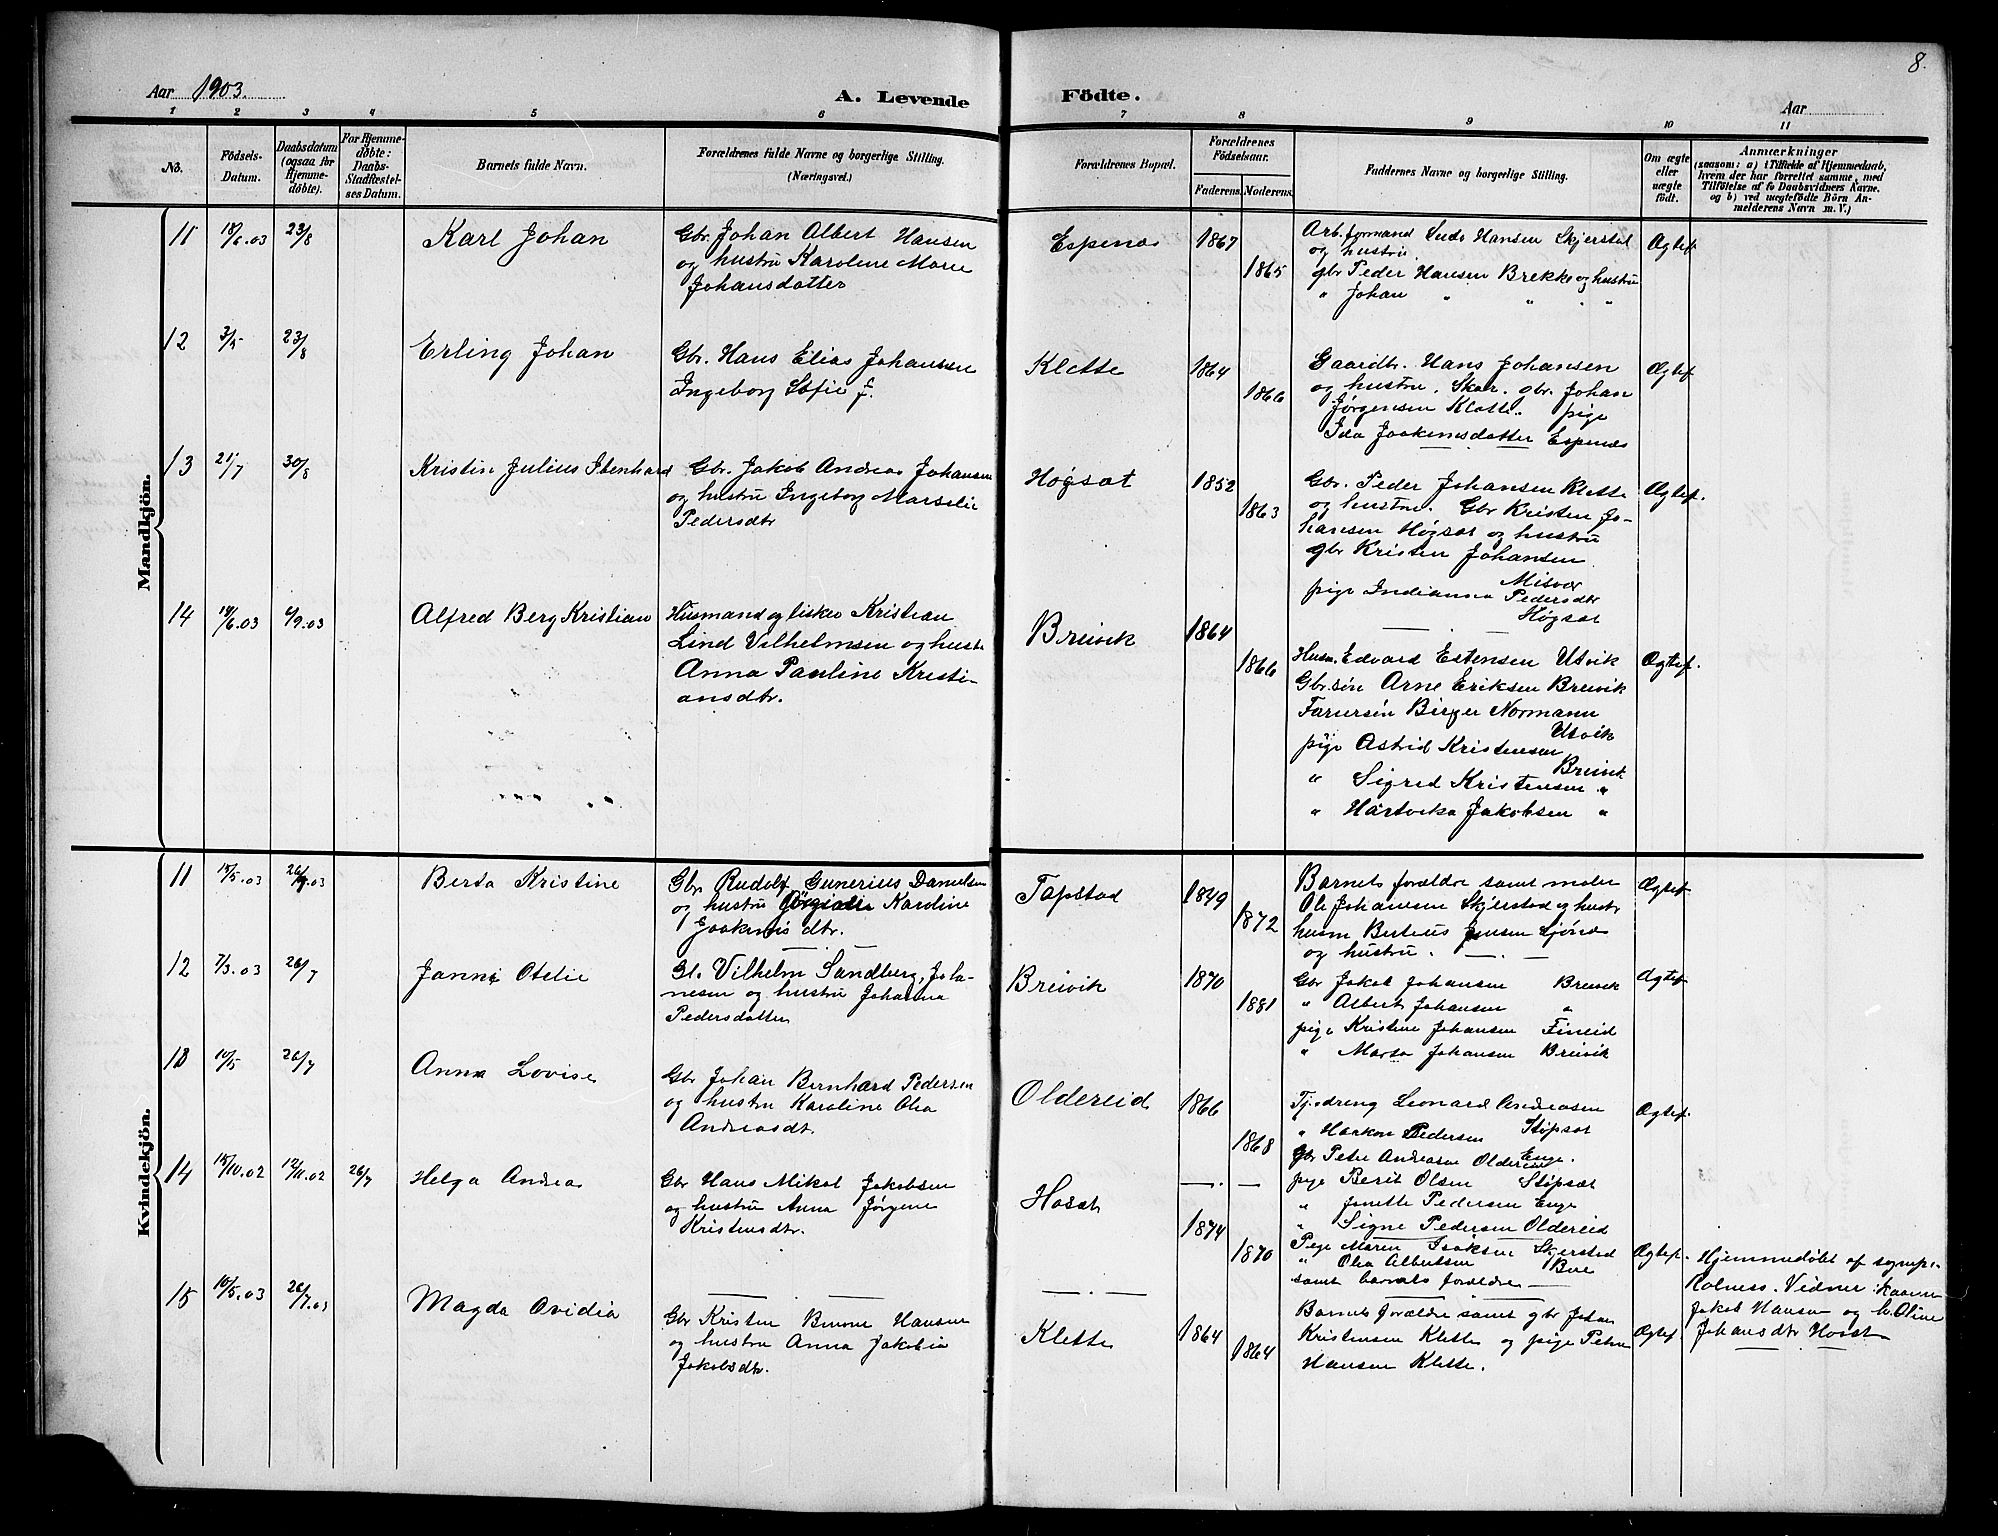 8.
Aar 1903.
A. Levende Födte.
Aar
1 2 3 4 5 6 7 8 9 10 11
No.
Födsels-
Datum.
Daabsdatum
(ogsaa for
Hjemme-
döbte).
For Hjemme-
döbte:
Daabs-
Stadfæstel-
ses Datum.
Barnets fulde Navn.
Forældrenes fulde Navne og borgerlige Stilling.
(Næringsvei.)
Forældrenes Bopæl.
Forældrenes
Födselsaar.
Faderens. Moderens.
Faddernes Navne og borgerlige Stilling.
Om ægte
eller
uægte
födt.
Anmærkninger
(saasom: a) i Tilfælde af Hjemmedaab,
hvem der har forrettet samme, med
Tilföielse af to Daabsvidners Navne,
og b) ved uægtefödte Börn An-
melderens Navn m. V.)
Mandkjön.
11 18/6.03 23/8 Karl Johan
Gbr. Johan Albert Hansen
og hustru Karoline Marie
Johansdatter
Espenæs 1867 1865
Arb.formand Hansen Skjerstad
og hustru.
gbr Peder Hansen Brekke og hustru
" Johan " " "
Ægtef
12 3/5 23/8 Erling Johan
Gbr. Hans Elias Johansen
Ingeborg Sofie J.
Klette 1864 1866
Gaardbr. Hans Johansen
og hustru. Skar. gbr. Johan
Jørgensen Klette. pige
Ida Joakimsdatter Espenæs
Ægtef
13 21/7 30/8 Kristin Julius Ibenhard
Gbr. Jakob Andreas Johansen
og hustru Ingeborg Marselie
Pedersdtr
Høgsæt 1852 1863
Gbr. Peder Johansen Klette
og hustru. Gbr Kristen Jo-
hansen Høgsæt og hustru
gbr Kristen Johansen
Misvær
pige Indianna Pedersdtr
Høgsæt
Ægtef.
14 14/6.03 6/9.03 Alfred Berg Kristian
Husmand og fisker Kristian
Lind Vilhelmsen og hustr
Anna Pauline Kristi-
ansdtr.
Breivik 1864 1866
Husm. Edvard Estensen Utvik
Gbr.søn Arne Eriksen Breivik
Birger Normann
Utvik
pige Astrid Kristensen
Breivik
" Sigred Kristensen "
" Hartvika Jakobsen "
Ægtef.
Kvindekjön.
11 17/5.03 26/7.03 Berta Kristine
Gbr Rudolf Gunerius Danielsen
og hustru Karoline
Joakimsdtr.
Tapstad 1849 1872
Barnets forældre samt maler
Ole Johansen Skjerstad og hustr
husm Berteus Jensen
og hustru.
Ægtef
12 7/3.03 26/7 Janni Otelie
Gl. Vilhelm Sandberg, Joha-
nesen og hustru Johanna
Pedersdatter
Breivik 1870 1881
Gbr Jakob Johansen Breivik
" Albert Johansen "
pige Kristine Johansen Fineid
" Marta Johansen Breivik
Ægtef
13 10/5 26/7 Anna Lovise
Gbr Johan Bernhard Pedersen
og hustru Karoline Olea
Andreasdt.
Oldereid 1866 1868
Tj.dreng Leonard Andreasen
" Haakon Pedersen Støpsæt
gbr Petter Andreasen Oldereid
Enge.
pige Berit Olsen Støpsæt
" Janette Pedersen Enge
" Signe Pedersen Oldereid
Ægtef.
14 15/10.02 12/11.02 26/7 Helga Andrea
Gbr Hans Mikal Jakobsen
og hustru Anna Jørgine
Kristensdtr.
Hosæt 1874 1870
Pige Maren Isaksen Skjerstad
" Olea Albertsen Bøe
samt barnets forældre
Ægtef.
Hjemmedøbt af sogne-
Vidner:
Jakob Hansen og h. Oline
Johansdtr Hosæt
15 10/5.03 26/7.03 Magda Ovidia
Gbr Kristen Hansen
og hustru Anna Jakobia
Jakobsdtr.
Klette 1864 1864
Barnets forældre samt gbr Johan
Kristensen Klette og pige Petra
Hansen Klette.
Ægtef